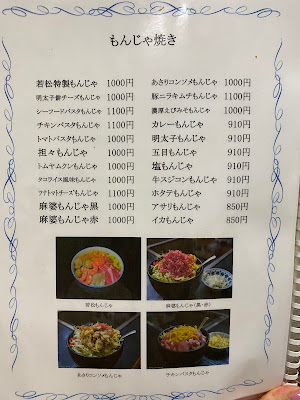 もんじゃ焼き
若松特製もんじゃ 1000円
明太子餅チーズもんじゃ 1100円
シーフードパスタもんじゃ 1100円
チキンパスタもんじゃ 1100円
トマトパスタもんじゃ 1000円
担々もんじゃ 1000円
トムヤムクンもんじゃ 1000円
タコライス風味もんじゃ 1000円
ツナトマトチーズもんじゃ 1100円
麻婆もんじゃ黒 1000円
麻婆もんじゃ赤 1000円
あさりコンソメもんじゃ 1000円
豚ニラキムチもんじゃ 1000円
濃厚えびみそもんじゃ 1000円
カレーもんじゃ 910円
明太子もんじゃ 910円
五目もんじゃ 910円
塩もんじゃ 910円
牛スジコンもんじゃ 910円
ホタテもんじゃ 910円
アサリもんじゃ 850円
イカもんじゃ 850円
若松もんじゃ
麻婆もんじゃ(黒・赤)
あさりコンソメもんじゃ
チキンパスタもんじゃ